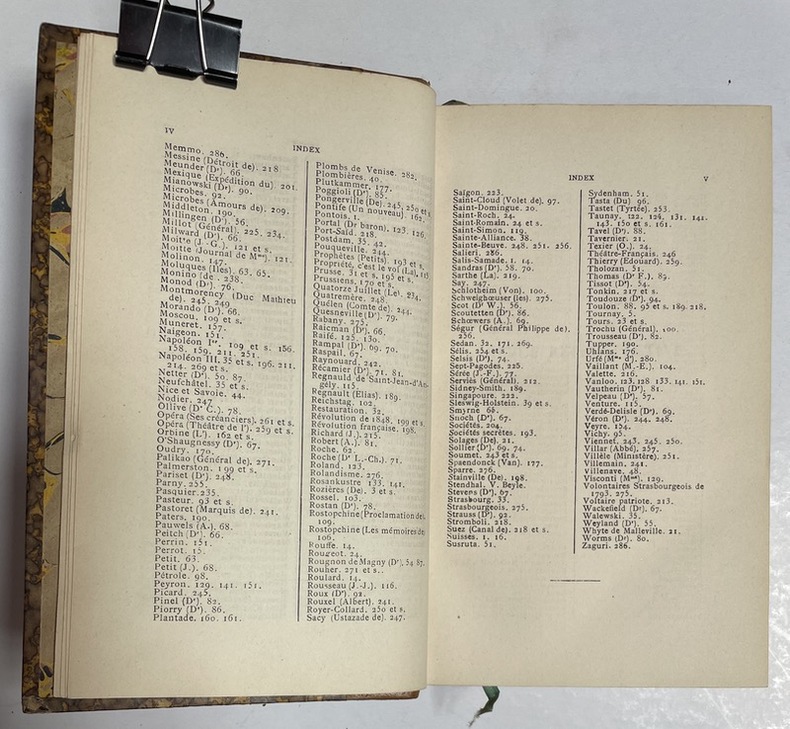 IV
INDEX
Memmo. 286.
Messine (Détroit de). 218
Meunder (Dr). 66.
Mexique (Expédition du). 201.
Mianowski (Dr). 90.
Microbes. 92.
Microbes (Amours de). 209.
Middleton. 190.
Millingen (Dr). 56.
Millot (Général). 225. 234.
Milward (Dr). 66.
Moitte (J.-G.). 121 et s.
Moitte (Journal de Mme). 121.
Molinon. 147.
Moluques (Iles). 63. 65.
Monod (Dr). 76.
Montmorency (Duc Mathieu
de). 245. 249.
Morando (Dr). 66.
Moscou. 109 et s.
Muneret. 157.
Naigeon. 151.
Napoléon Ier. 109 et s. 156.
158. 159. 211. 251.
Napoléon III. 35 et s. 196. 211.
214. 269 et s.
Netter (Dr). 50. 87.
Neufchâtel. 35 et s.
Nice et Savoie. 44.
Nodier. 247.
Ollive (Dr C.). 78.
Opéra (Ses créanciers). 261 et s.
Opéra (Théâtre de l'). 259 et s.
Orbine (L'). 162 et s.
O'Shaugnessy (Dr). 67.
Oudry. 170.
Palikao (Général de). 271.
Palmerston. 199 et s.
Pariset (Dr). 248.
Parny. 255.
Pasquier. 235.
Pasteur. 93 et s.
Pastoret (Marquis de). 241.
Paters. 190.
Pauwels (A.). 68.
Peitch (Dr). 66.
Perrin. 151.
Perrot. 15.
Petit. 63.
Petit (J.). 68.
Pétrole. 98.
Peyron. 129. 141. 151.
Picard. 245.
Pinel (Dr). 82.
Piorry (Dr). 86.
Plantade. 160. 161.
Plombs de Venise. 282.
Plombières. 40.
Plutkammer. 177.
Poggioli (Dr). 85.
Pongerville (De). 245, 250 et s.
Pontife (Un nouveau). 162.
Pontois. 1.
Portal (Dr baron). 123. 126.
Port-Saïd. 218.
Postdam. 35. 42.
Pouqueville. 244.
Prophètes (Petits). 193 et s.
Propriété, c'est le vol (La).
Prusse. 31 et s. 195 et s.
Prussiens. 170 et s.
Quatorze Juillet (Le). 234.
Quatremère. 248.
Quélen (Comte de). 244.
Quesneville (Dr). 79.
Rabany. 275.
Raicman (Dr). 66.
Raifé. 125. 130.
Rampal (Dr). 69. 70.
Raspail. 67.
Raynouard. 242.
Récamier (Dr). 71. 81.
Regnauld de Saint-Jean-d'An-
gély. 115.
Regnault (Elias). 189.
Reichstag. 102.
Restauration. 32.
Révolution de 1848. 199 et s.
Révolution française. 198.
Richard (J.). 215.
Robert (A.). 81.
Roche. 62.
Roche (Dr L.-Ch.). 71.
Roland. 123.
Rolandisme. 276.
Rosankustre 133. 141.
Rozières (De). 3 et s.
Rossel. 103.
Rostan (Dr). 78.
Rostopchine (Proclamation de).
109.
Rostopchine (Les mémoires de)
106.
Rouffe. 14.
Rougeot. 24.
Rougnon de Magny (Dr). 54 87.
Rouher. 271 et s.
Roulard. 14.
Rousseau (J.-J.). 116.
Roux (Dr). 92.
Rouxel (Albert). 241.
Royer-Collard. 250 et s.
Sacy (Ustazade de). 247.
INDEX
V
Saïgon. 223.
Saint-Cloud (Volet de). 97.
Saint-Domingue. 20.
Saint-Roch. 24.
Saint-Romain. 24 et s.
Saint-Simon. 119.
Sainte-Alliance. 38.
Sainte-Beuve. 248. 251. 256.
Salieri. 286.
Salis-Samade. 1. 14.
Sandras (Dr). 58. 70.
Sarthe (La). 219.
Say. 247.
Schlotheim (Von). 100.
Schweighœuser (les). 275.
Scot (Dr W.). 56.
Scoutetten (Dr). 86.
Schœwers (A.). 69.
Ségur (Général Philippe de).
256.
Sedan. 32. 171. 269.
Sélis. 254 et s.
Selsis (Dr). 74.
Sept-Pagodes. 225.
Sérée (J.-F.). 77.
Serviès (Général). 212.
Sidney-Smith. 189.
Singapoure. 222.
Sleswig-Holstein. 39 et s.
Smyrne 66.
Snoch (Dr). 67.
Sociétés. 204.
Sociétés secrètes. 193.
Solages (De). 21.
Sollier (Dr). 69. 74.
Soumet. 243 et s.
Spaendonck (Van). 177.
Sparre. 276.
Stainville (De). 198.
Stendhal. V. Beyle.
Stevens (Dr). 67.
Strasbourg. 33.
Strasbourgeois. 275.
Strauss (Dr). 92.
Stromboli. 218.
Suez (Canal de). 218 et s.
Suisses. 1. 16.
Susruta. 51.
Sydenham. 51.
Tasta (Du) 96.
Tastet (Tyrtée). 253.
Taunay. 122. 124. 131. 141.
143. 150 et s. 161.
Tavel (Dr). 88.
Tavernier. 21.
Texier (O.). 24.
Théâtre-Français. 246
Thierry (Edouard). 259.
Tholozan. 51.
Thomas (Dr F.). 89.
Tissot (Dr). 54.
Tonkin. 217 et s.
Toudouze (Dr). 94.
Toulon. 88. 95 et s. 189. 218.
Tournay. 5.
Tours. 23 et s.
Trochu (Général). 100.
Trousseau (Dr). 82.
Tupper. 190.
Uhlans. 176.
Urfé (Mme d'). 280.
Vaillant (M.-E.). 104.
Valette. 216.
Vanloo. 123. 128 133. 141. 151.
Vautherin (Dr). 81.
Velpeau (Dr). 57.
Venture. 115.
Verdé-Delisle (Dr). 69.
Véron (Dr). 244. 248.
Veyre. 154.
Vichy. 95.
Viennet. 243. 245. 250.
Villar (Abbé). 257.
Villèle (Ministère). 251.
Villemain. 241.
Villenave. 48.
Visconti (Mme). 129.
Volontaires Strasbourgeois de
1793. 275.
Voltaire patriote. 213.
Wackefield (Dr). 67.
Walewski. 35.
Weyland (Dr). 55.
Whyte de Malleville. 21.
Worms (Dr). 80.
Zaguri. 286.